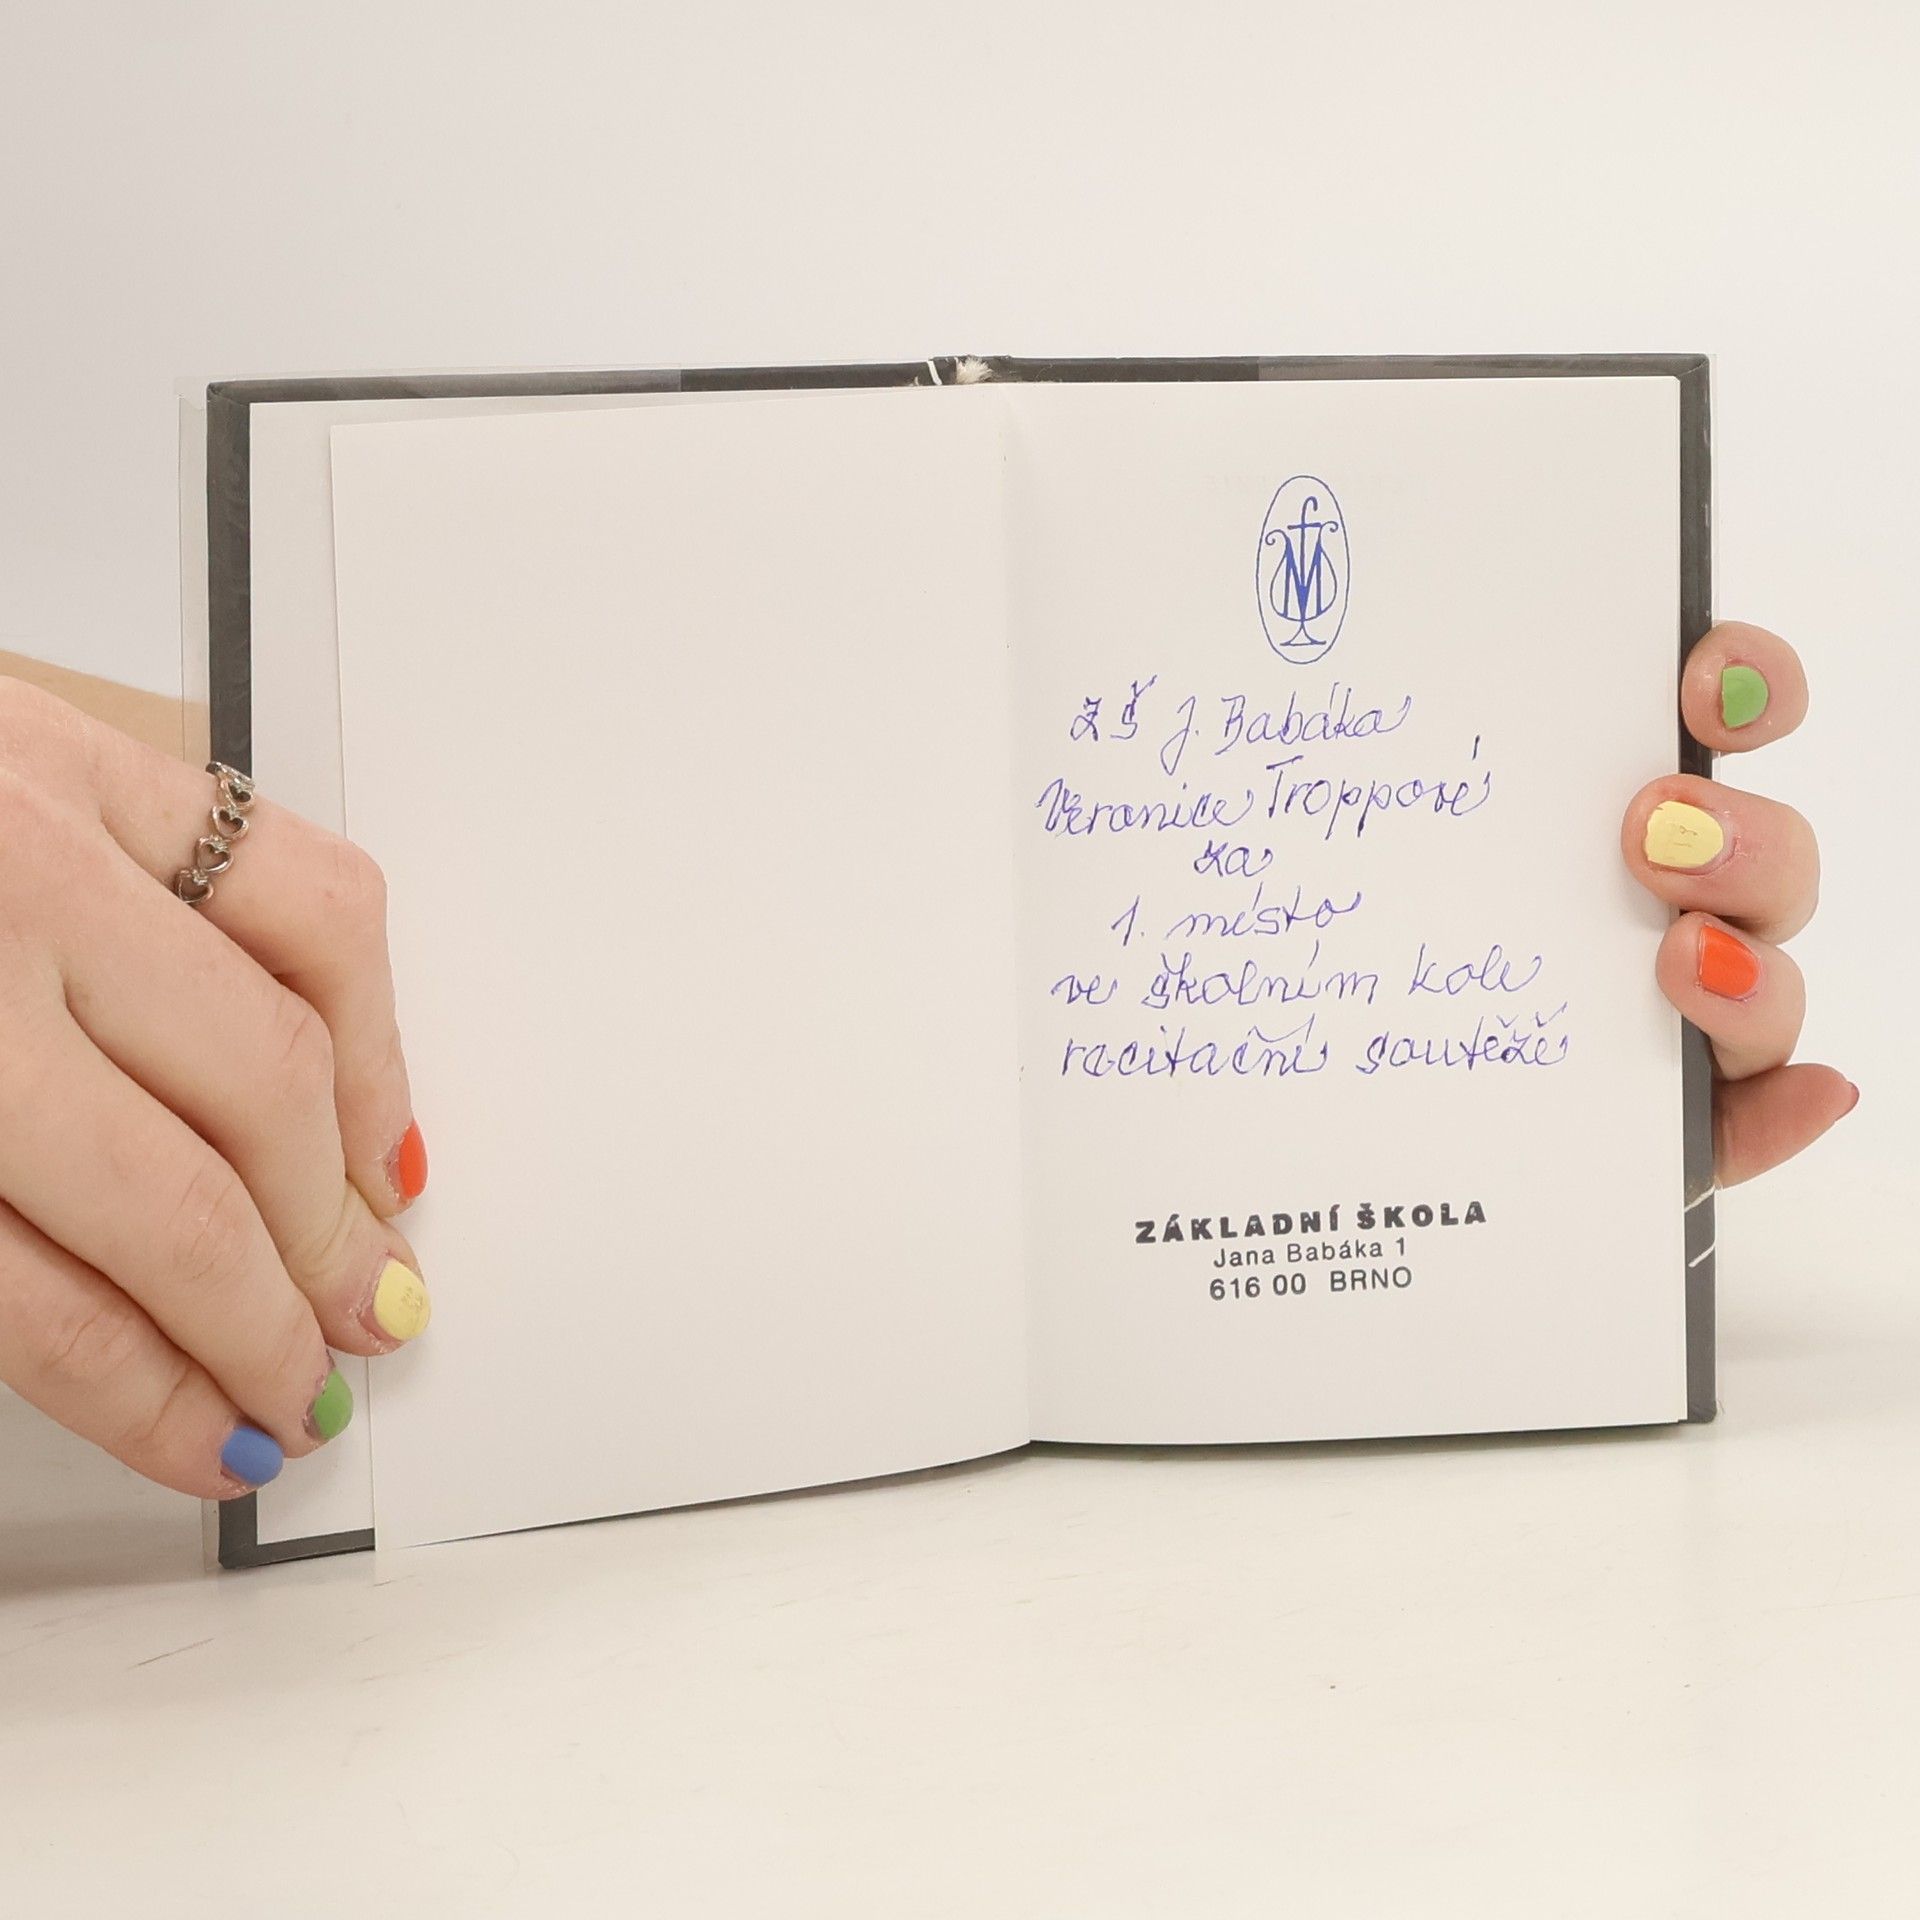 ZŠ J. Babáka
Veronice Troppové
za
1. místo
ve školním kole
recitační soutěže
ZÁKLADNÍ ŠKOLA
Jana Babáka 1
616 00 BRNO